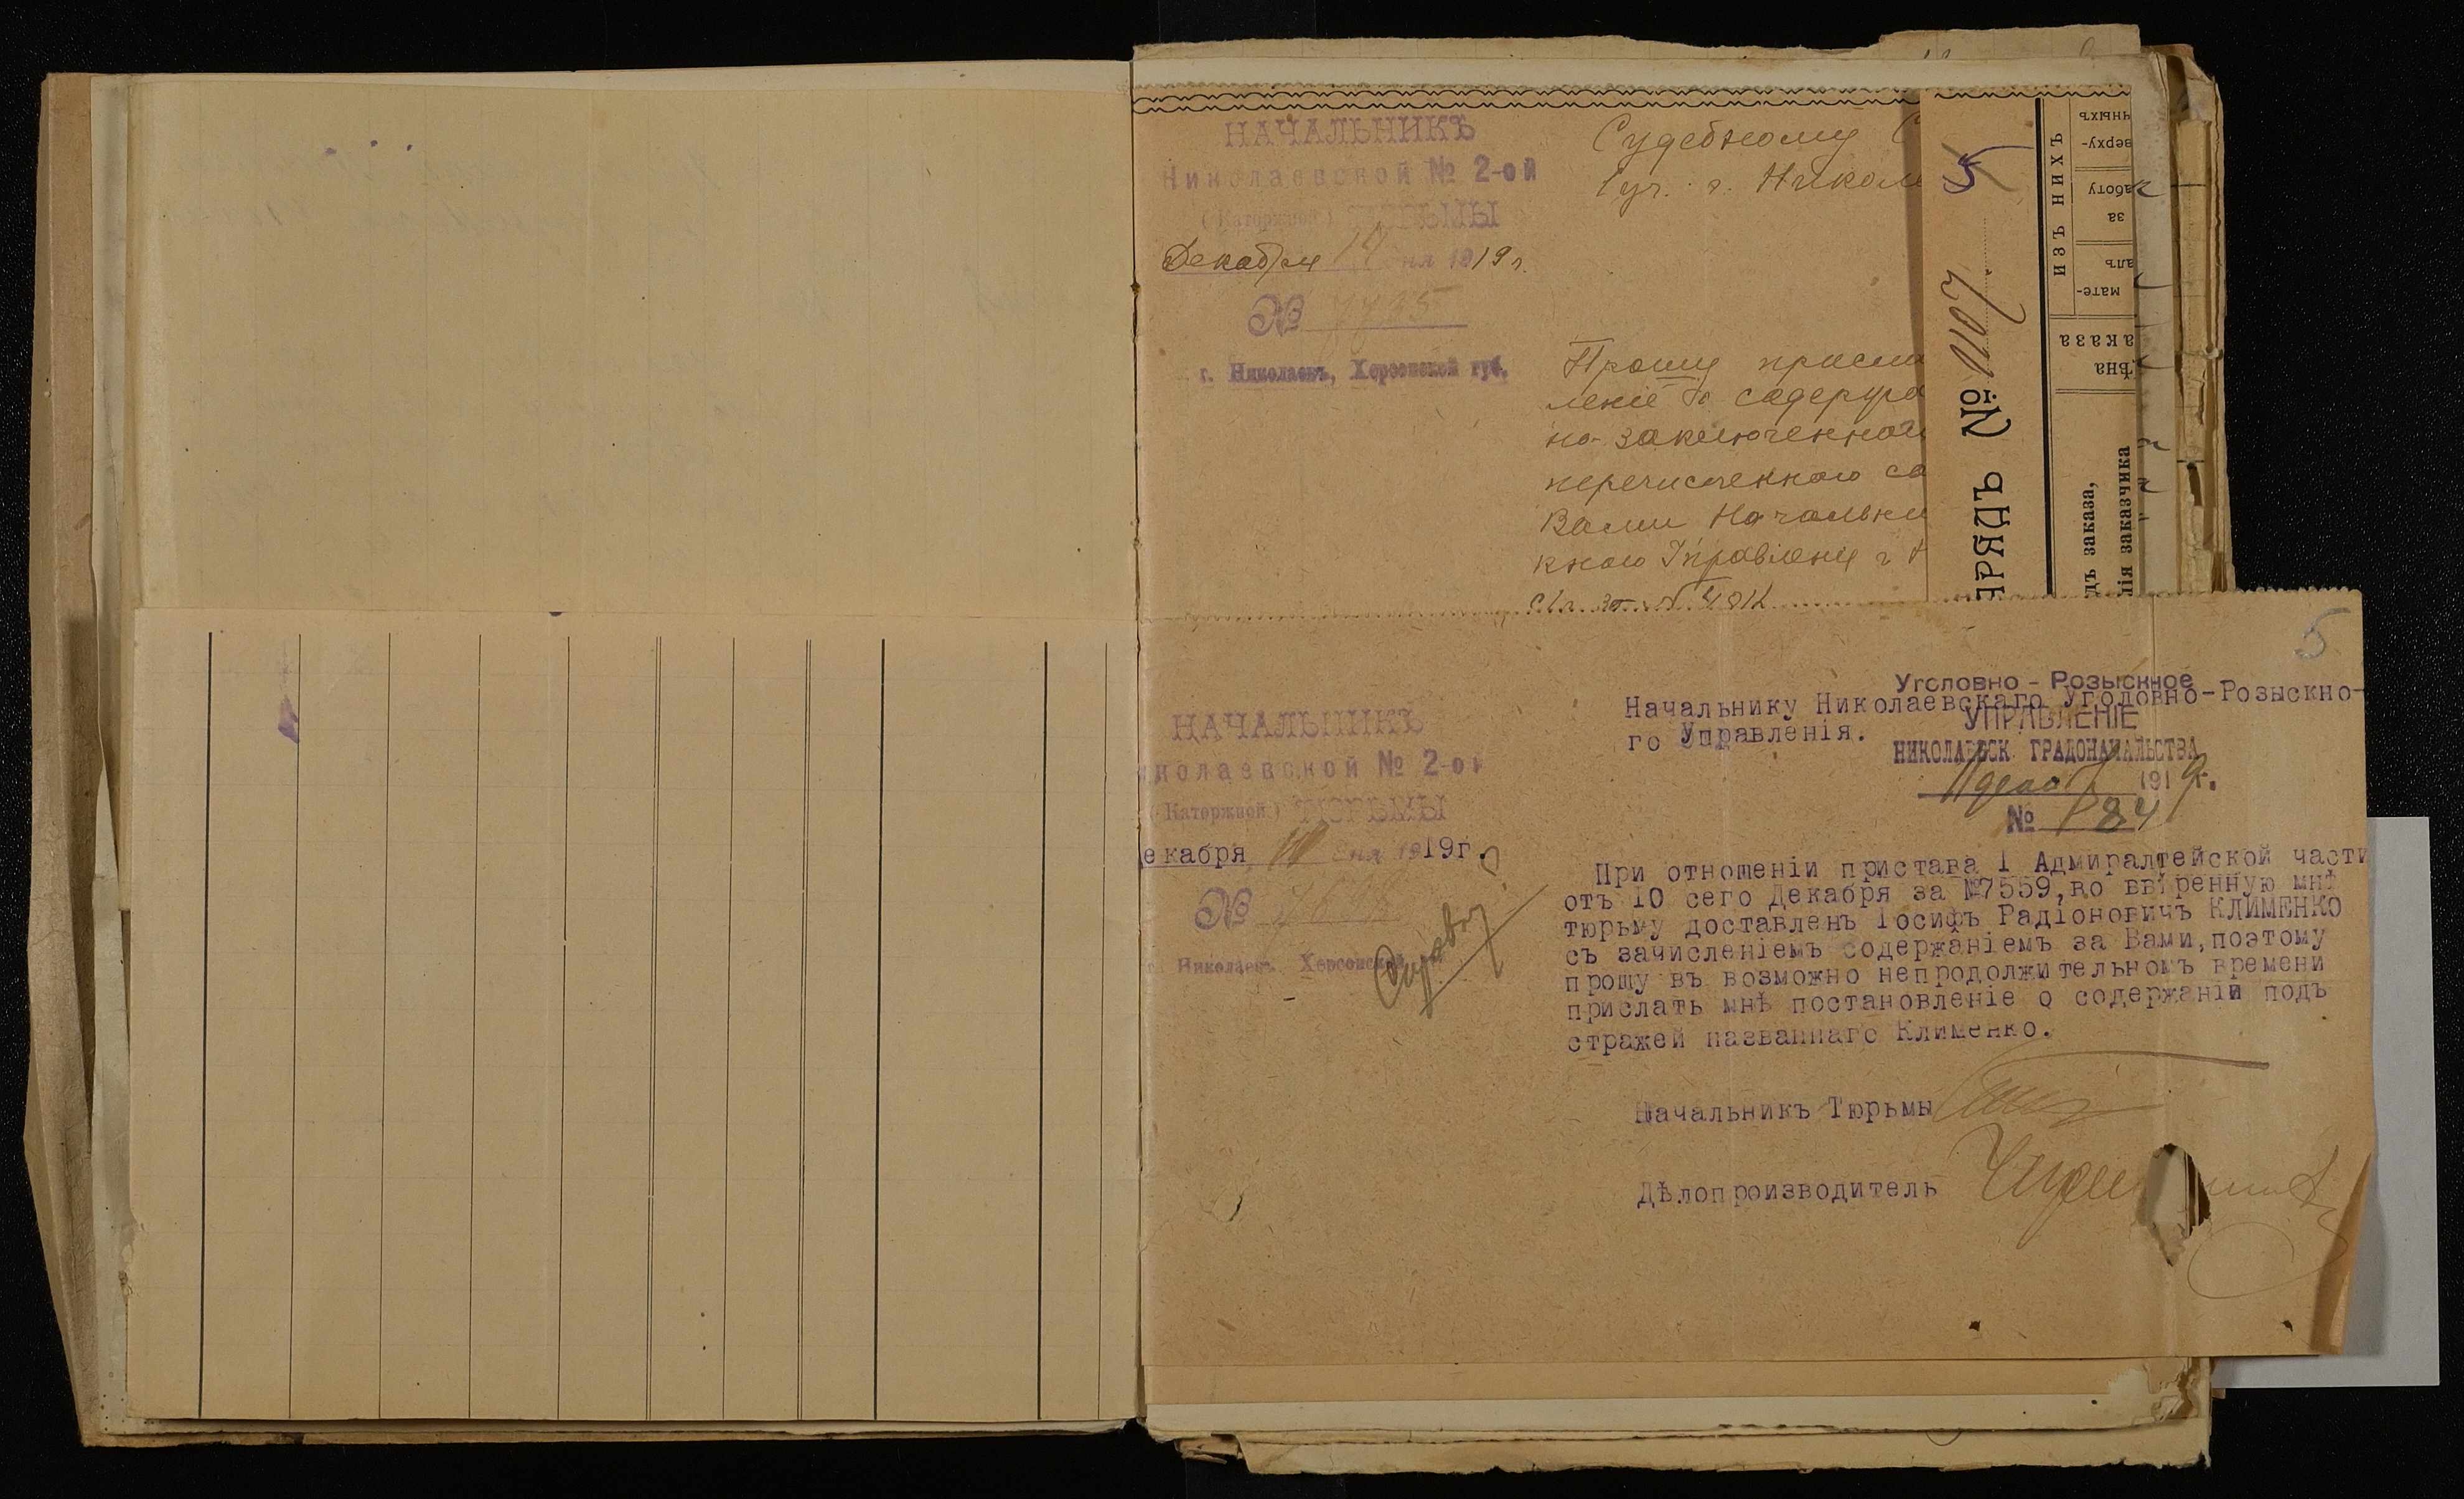 НАЧАЛЬНИКЪ
Николаевской № 2-ой
(Каторжной) ТЮРЬМЫ
Декабря дня 1919 г.
№
г. Николаевъ, Херсонской губ.
Судебному С
1 уч. г. Никол
Прошу присл
леніе о содержа
но заключенной
перечисленного
Вами Начальни
кного Управленія г
5
РЯДЪ № 1107
ИЗЪ НИХЪ
чныхъ
верху-
аботу
за
алъ
мате-
аказа
ѣна
дъ заказа,
нія заказчика
5
НАЧАЛЬНИКЪ
иколаевской № 2-ой
(Каторжной) ТЮРЬМЫ
екабря дня 1919г.
№
г. Николаевъ Херсонской
Начальнику Николаевскаго Уголовно-Розыскно-
го Управленія.
Уголовно - Розыскное
УПРАВЛЕНІЕ
НИКОЛАЕВСК. ГРАДОНАЧАЛЬСТВА
11 1919г.
№ 184
При отношеніи пристава 1 Адмиралтейской части
отъ 10 сего Декабря за №7559, во ввѣренную мнѣ
тюрьму доставленъ Іосифъ Радіоновичъ КЛИМЕНКО
съ зачисленіемъ содержаніемъ за Вами, поэтому
прошу въ возможно непродолжительномъ времени
прислать мнѣ постановленіе о содержаніи подъ
стражей названнаго Клименко.
Начальникъ Тюрьмы
Дѣлопроизводитель